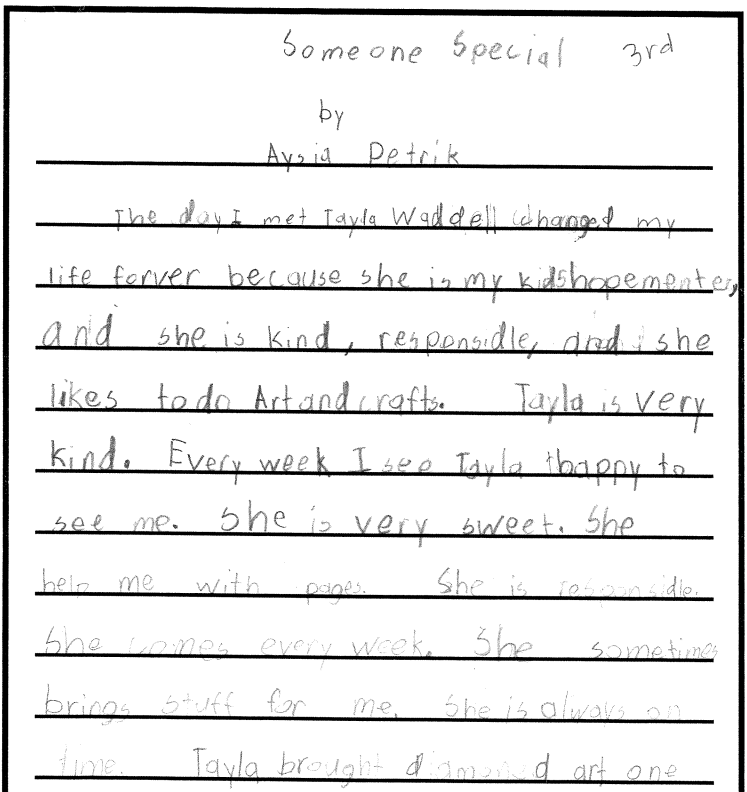 Someone Special 3rd
by
Aysia Petrik
The day I met Tayla Waddell changed my
life forver because she is my kidshopementer,
and she is kind, responsidle, and she
likes to do Art and crafts. Tayla is very
kind. Every week I see Tayla happy to
see me. She is very sweet. She
help me with pages. She is responsidle.
She comes every week. She sometimes
brings stuff for me. She is always on
time. Tayla brought diamoned art one